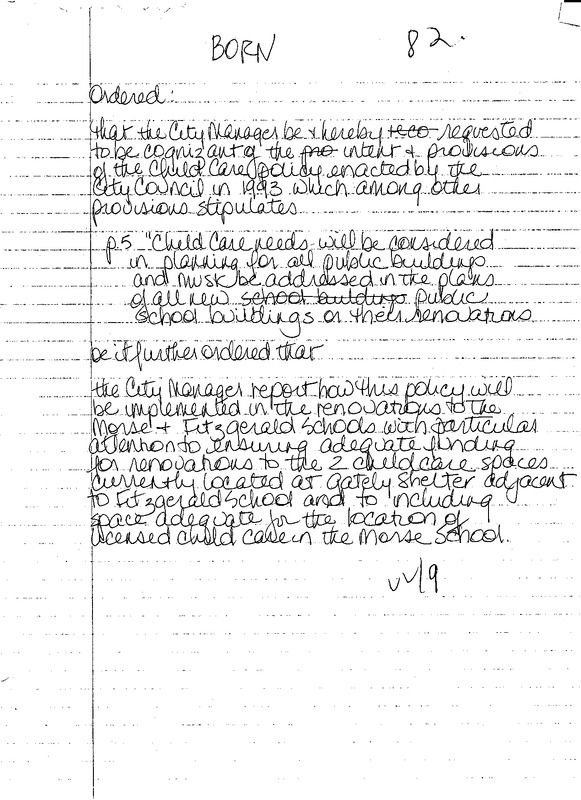 BORN 82.
Ordered:
that the City Manager be & hereby reco requested
to be cognizant of the pro intent & provisions
of the Child Care policy enacted by the
City Council in 1993 which among other
provisions stipulates
p.5 "Child Care needs will be considered
in planning for all public buildings
and must be addressed in the plans
of all new school buildings public
school buildings or their renovations
be it further ordered that
the City Manager report how this policy will
be implemented in the renovations to the
Morse & Fitzgerald Schools with particular
attention to ensuring adequate funding
for renovations to the 2 child care spaces
currently located at Gately Shelter adjacent
to Fitzgerald School and to including
space adequate for the location of
licensed child care in the Morse School.